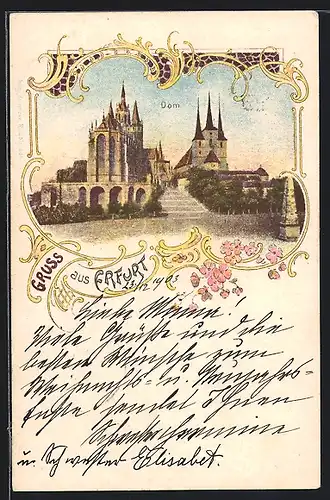 Dom
GRUSS aus ERFURT
23/12 1903
Liebe Minna!
Viele Grüße und die
besten Wünsche zum
Weihnachts- u. Neujahrs-
feste sendet Ihnen
u. Schwester Elisabet.